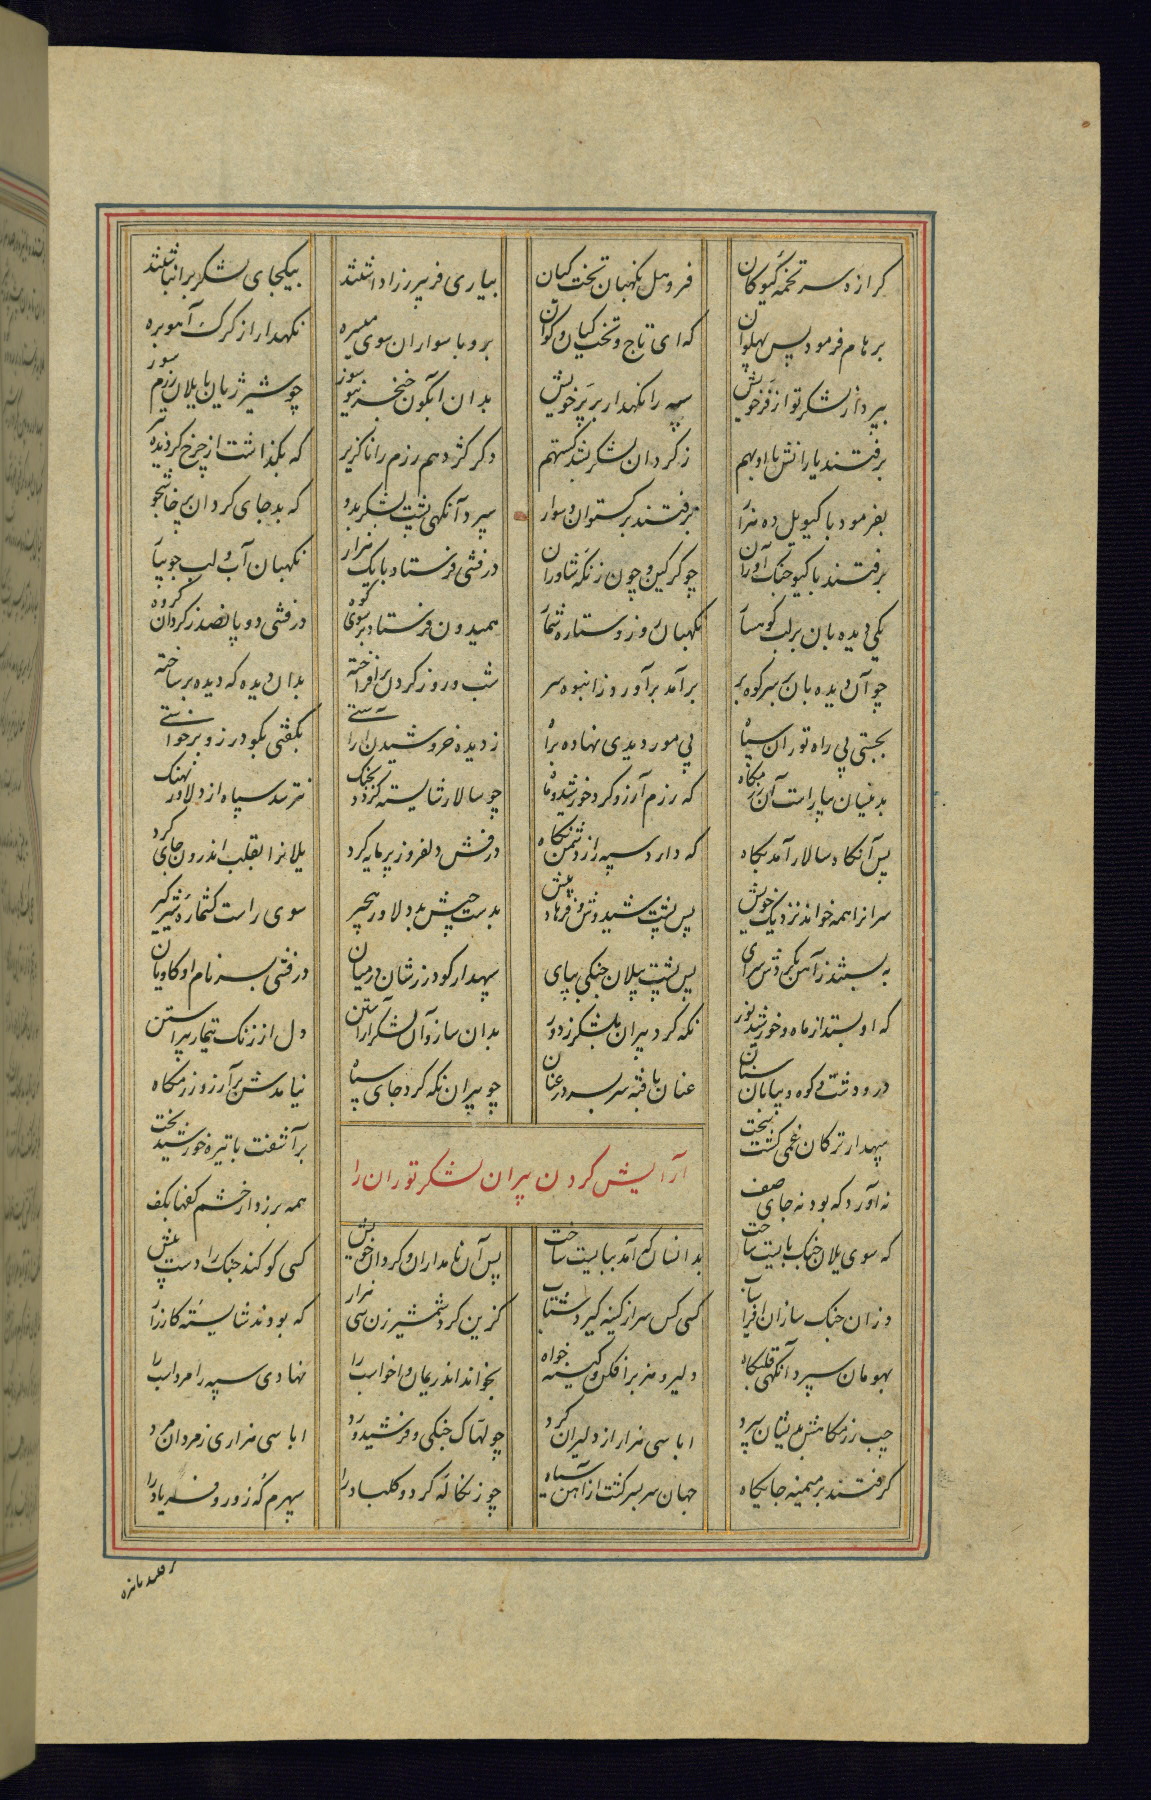 گرازه سر تخمه گیوکان فروهل نگهبان تخت کیان بیاری فریبرز را داشتند بیکجای لشکر برانباشتند
برهام فرمود پس پهلوان که ای تاج و تخت کیان و گوان برو با سواران سوی میسره نگهدار از گرگ آهو بره
بپرداز لشکر تو از فر خویش سپه را نگهدار بر پر خویش بدان آبگون خنجر نیوسوز چو شیر ژیان با یلان رزم سوز
برفتند یارانش با او بهم ز گردان لشکر شد گستهم دگر گژدهم رزم را ناگزیر که بگذاشت از چرخ گردنده تیر
بفرمود با گیو یل ده هزار برفتند برگستوان و سوار سپرد آنگهی پشت لشکر بدو که بد جای گردان پرخاشجو
برفتند با گیو جنگ آوران چو گرگین و چون زنگه شاوران درفشی فرستاد با یک هزار نگهبان آب و لب جویبا
یکی دیده بان بر لب کوهسا نگهبان روز و ستاره شما همیدون فرستاد بر سوی کوه درفشی دو پانصد ز گردان گروه
چو آن دیده بان بر سر کوه بر برآمد برآورد ز انبوه سر شب و روز گردن برافراخته بدان دیده که دیده بر ساخته
بجستی پی راه توران سپاه پی مور دیدی نهاده براه ز دیده خروشیدن آراستی بگفتی بگودرز و برخواستی
بدمیان بیاراست آن رزمگاه که رزم آرزو کرد خورشید و ماه چو سالار شایسته گردد بجنگ نترسد سپاه از دلاور نهنگ
پس آنگاه سالار آمد بگاه که دارد سپه را ز دشمن نگاه درفش دلفروز پرمایه کرد یلانرا بقلب اندرون جای کرد
سرانرا همه خواند نزدیک خویش پس پشت شیدوش و فرهاد پیش بدست چپش بد دلاور هجیر سوی راست کتماره شیرگیر
به بستند ز آهن بگردش سرای پس پشت پیلان جنگی بپای سپهدار گودرز شان در میان درفشی بسر نام او کاویان
که او بستد از ماه و خورشید نور نگه کرد پیران بلشکر ز دور بدان ساز و آن لشکر آراستن دل از زنگ تیمار پیراستن
در و دشت و کوه و بیابان سنان عنان بافته سر بسر در عنان چو پیران نگه کرد جای سپاه نیامدش بر آرزو رزمگاه
سپهدار ترکان غمی گشت سخت برآشفت با تیره خورشید بخت
آرایش کردن پیران لشکر توران را
نه آورد که بود نه جای صف همه بر زد از خشم کفها بکف
بدانسان که آمد ببایست ساخت که سوی یلان جنگ بایست تاخت پس آن نامداران و گردان خویش کسی کو کند جنگ را دست پیش
وزان جنگ سازان افراسیاب کسی کش سر از کینه گیرد شتاب گزین کرد شمشیر زن سی هزار که بودند شایسته کارزار
بهومان سپرد آنگهی قلبگاه دلیر و هنر برافکن و کینه خواه بخواند اندریمان و اخواست را نهادی سپه را مر راست را
چپ رزمگاهش بدیشان سپرد ابا سی هزار از دلیران گرد چو لهاک جنگی و فرشیدورد ابا سی هزاری ز مردان مرد
گرفتند بر میمنه جایگاه جهان سربسر گشت از آهن سیاه چو زنگاله گرد و کلباد را سپهرم که روز و فریاد را